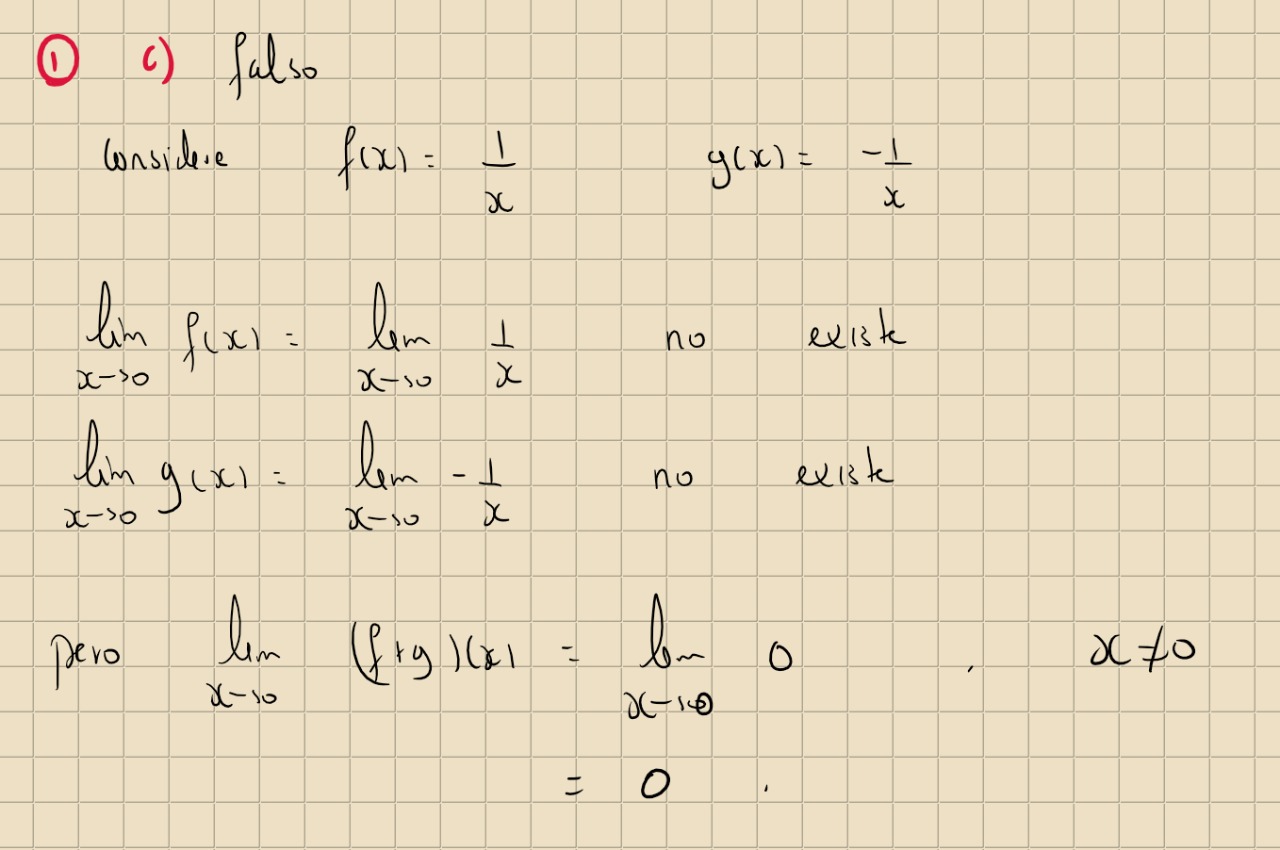 ① c) falso
considere f(x) = 1/x g(x) = -1/x
lim x->0 f(x) = lim x->0 1/x no existe
lim x->0 g(x) = lim x->0 -1/x no existe
pero lim x->0 (f+g)(x) = lim x->0 0 , x≠0
= 0 .